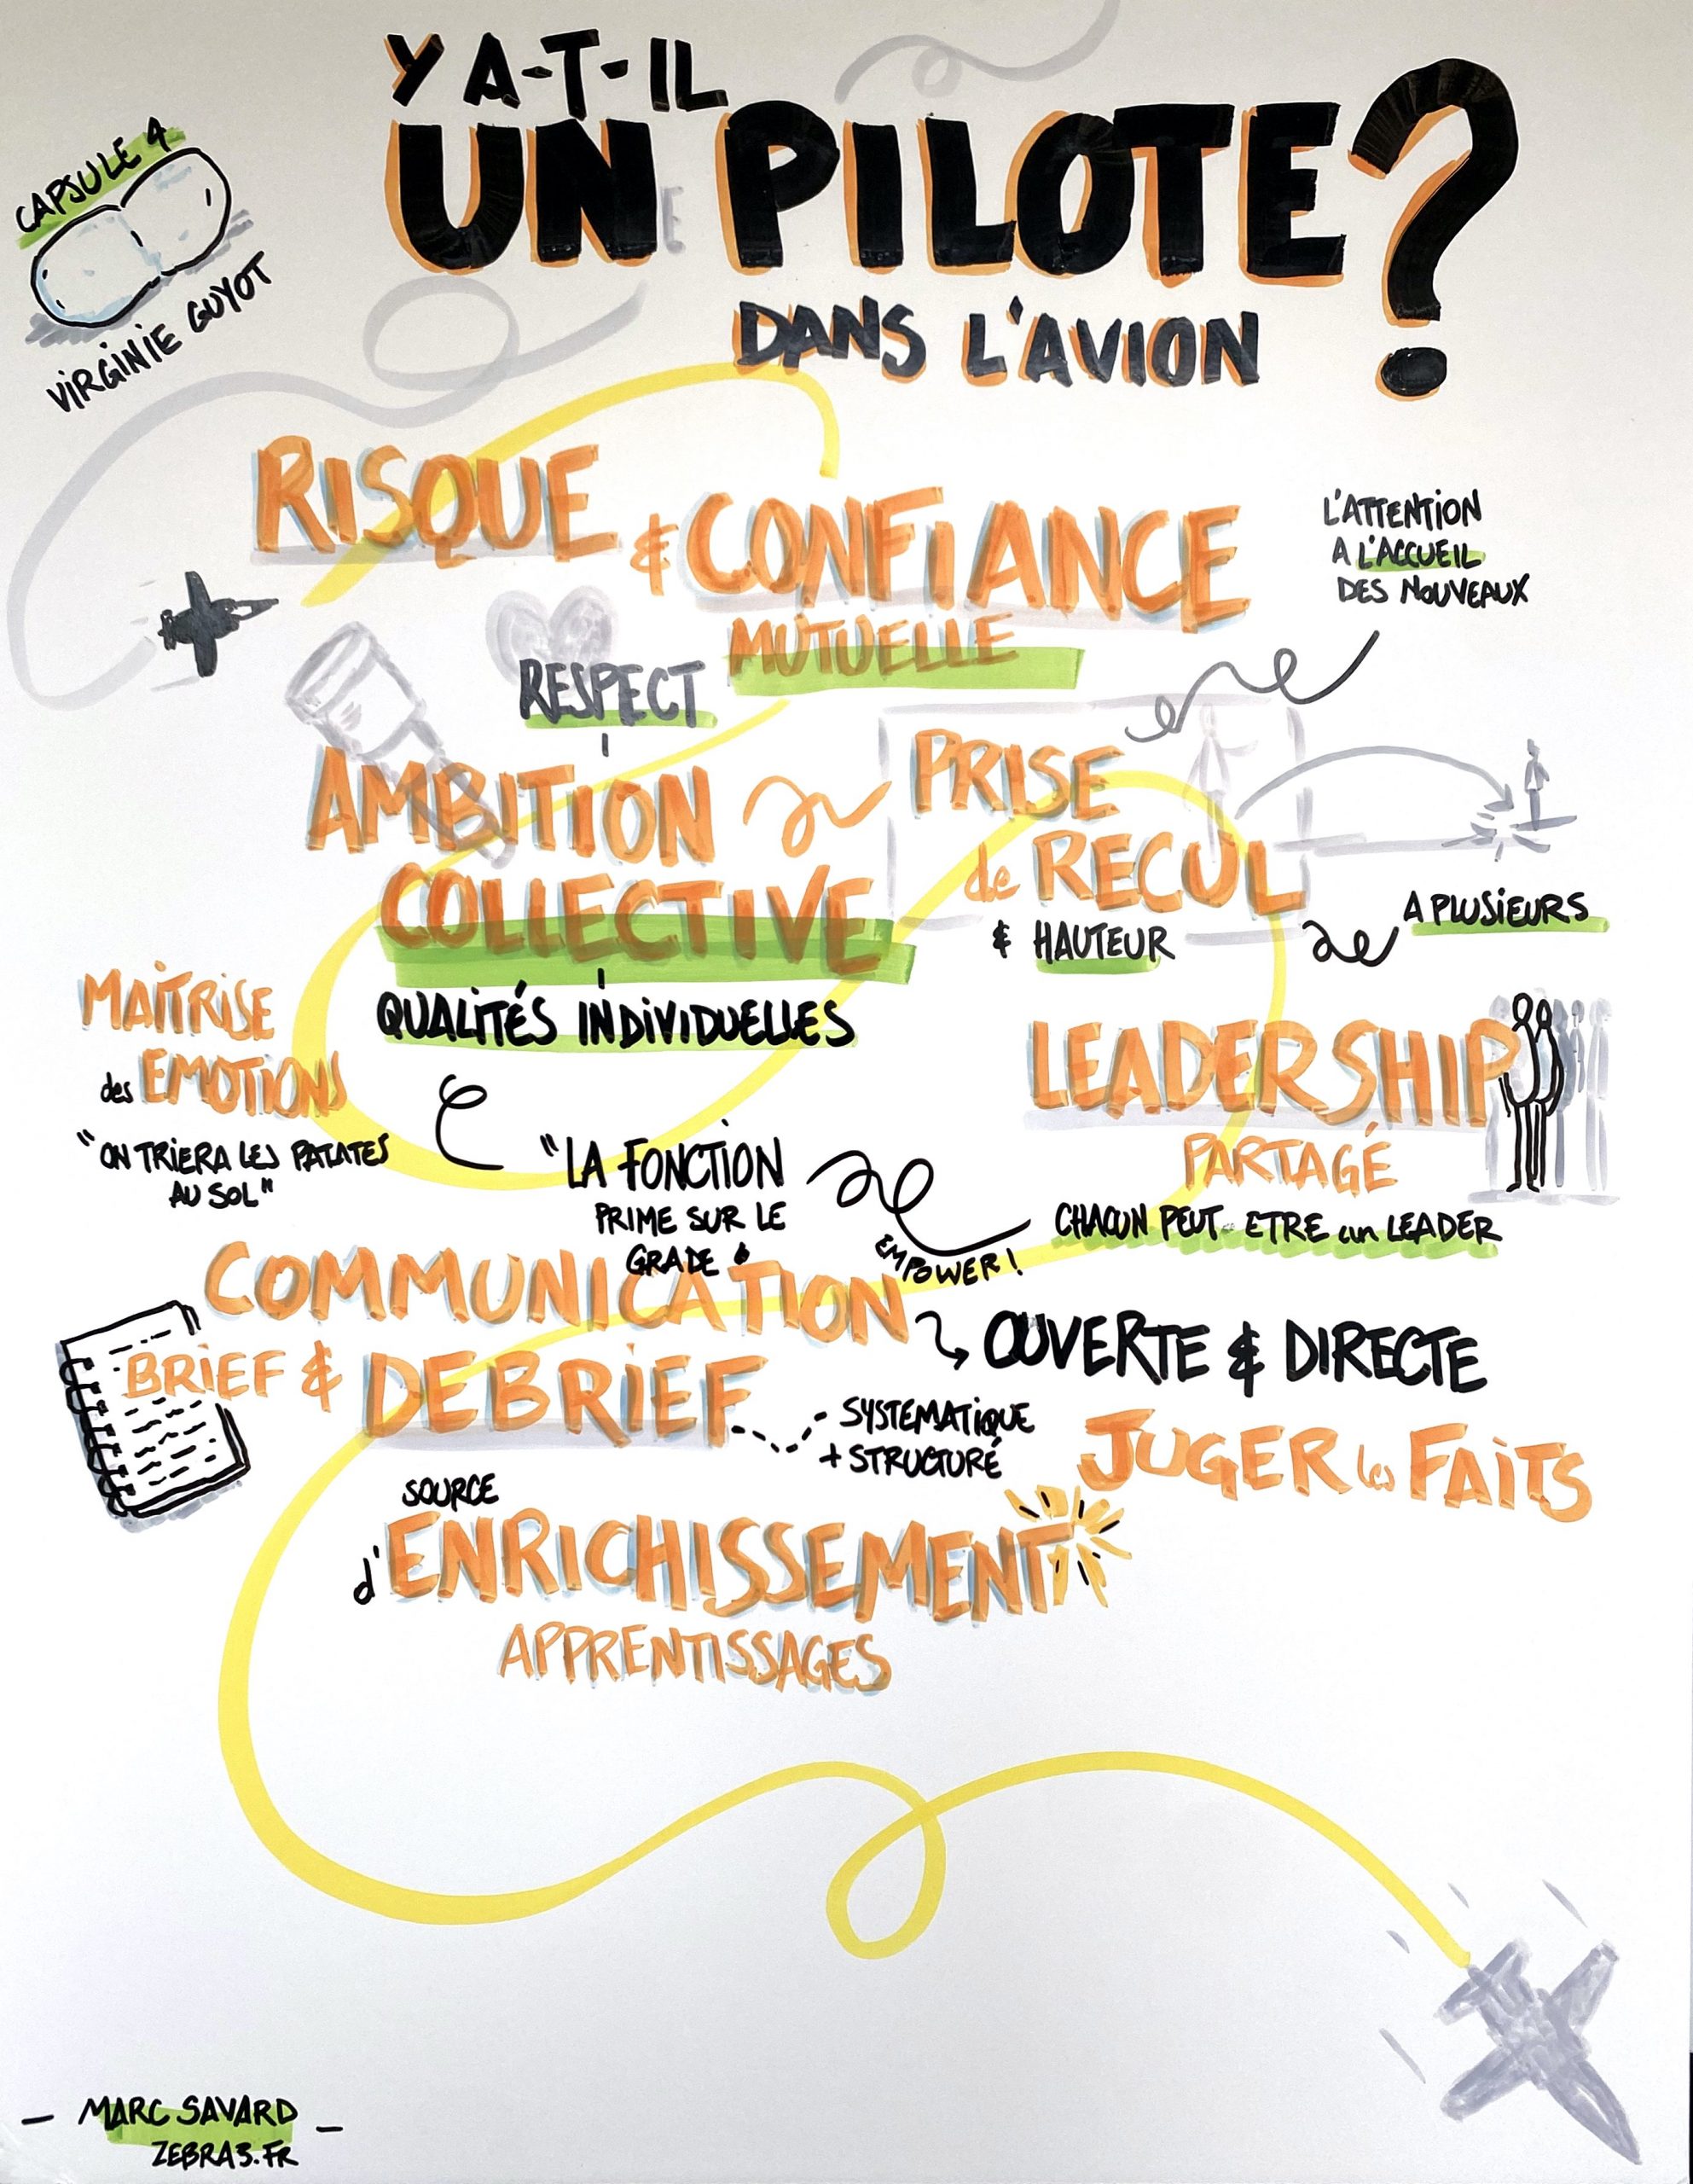 Y A-T-IL
UNE PILOTE?
DANS L'AVION
CAPSULE 4
VIRGINIE GUYOT
RISQUE
& CONFIANCE
MUTUELLE
L'ATTENTION
A L'ACCUEIL
DES NOUVEAUX
RESPECT
AMBITION
COLLECTIVE
QUALITÉS INDIVIDUELLES
PRISE
de RECUL
& HAUTEUR
A PLUSIEURS
MAITRISE
des EMOTIONS
"ON TRIERA LES PATATES
AU SOL"
"LA FONCTION
PRIME SUR LE
GRADE"
LEADERSHIP
PARTAGÉ
CHACUN PEUT ETRE un LEADER
EMPOWER!
COMMUNICATION
OUVERTE & DIRECTE
BRIEF & DEBRIEF
SYSTEMATIQUE
+ STRUCTURÉ
JUGER les FAITS
SOURCE
d'ENRICHISSEMENT
APPRENTISSAGES
- MARC SAVARD -
ZEBRA3.FR